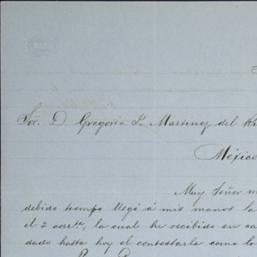 Sor. D. Gregorio L. Martinez del R
Méjico
Muy Señor m
debido tiempo llegó á mis manos la
el 2 corrte, la cual he recibido en ca
dado hasta hoy el contestarla como lo